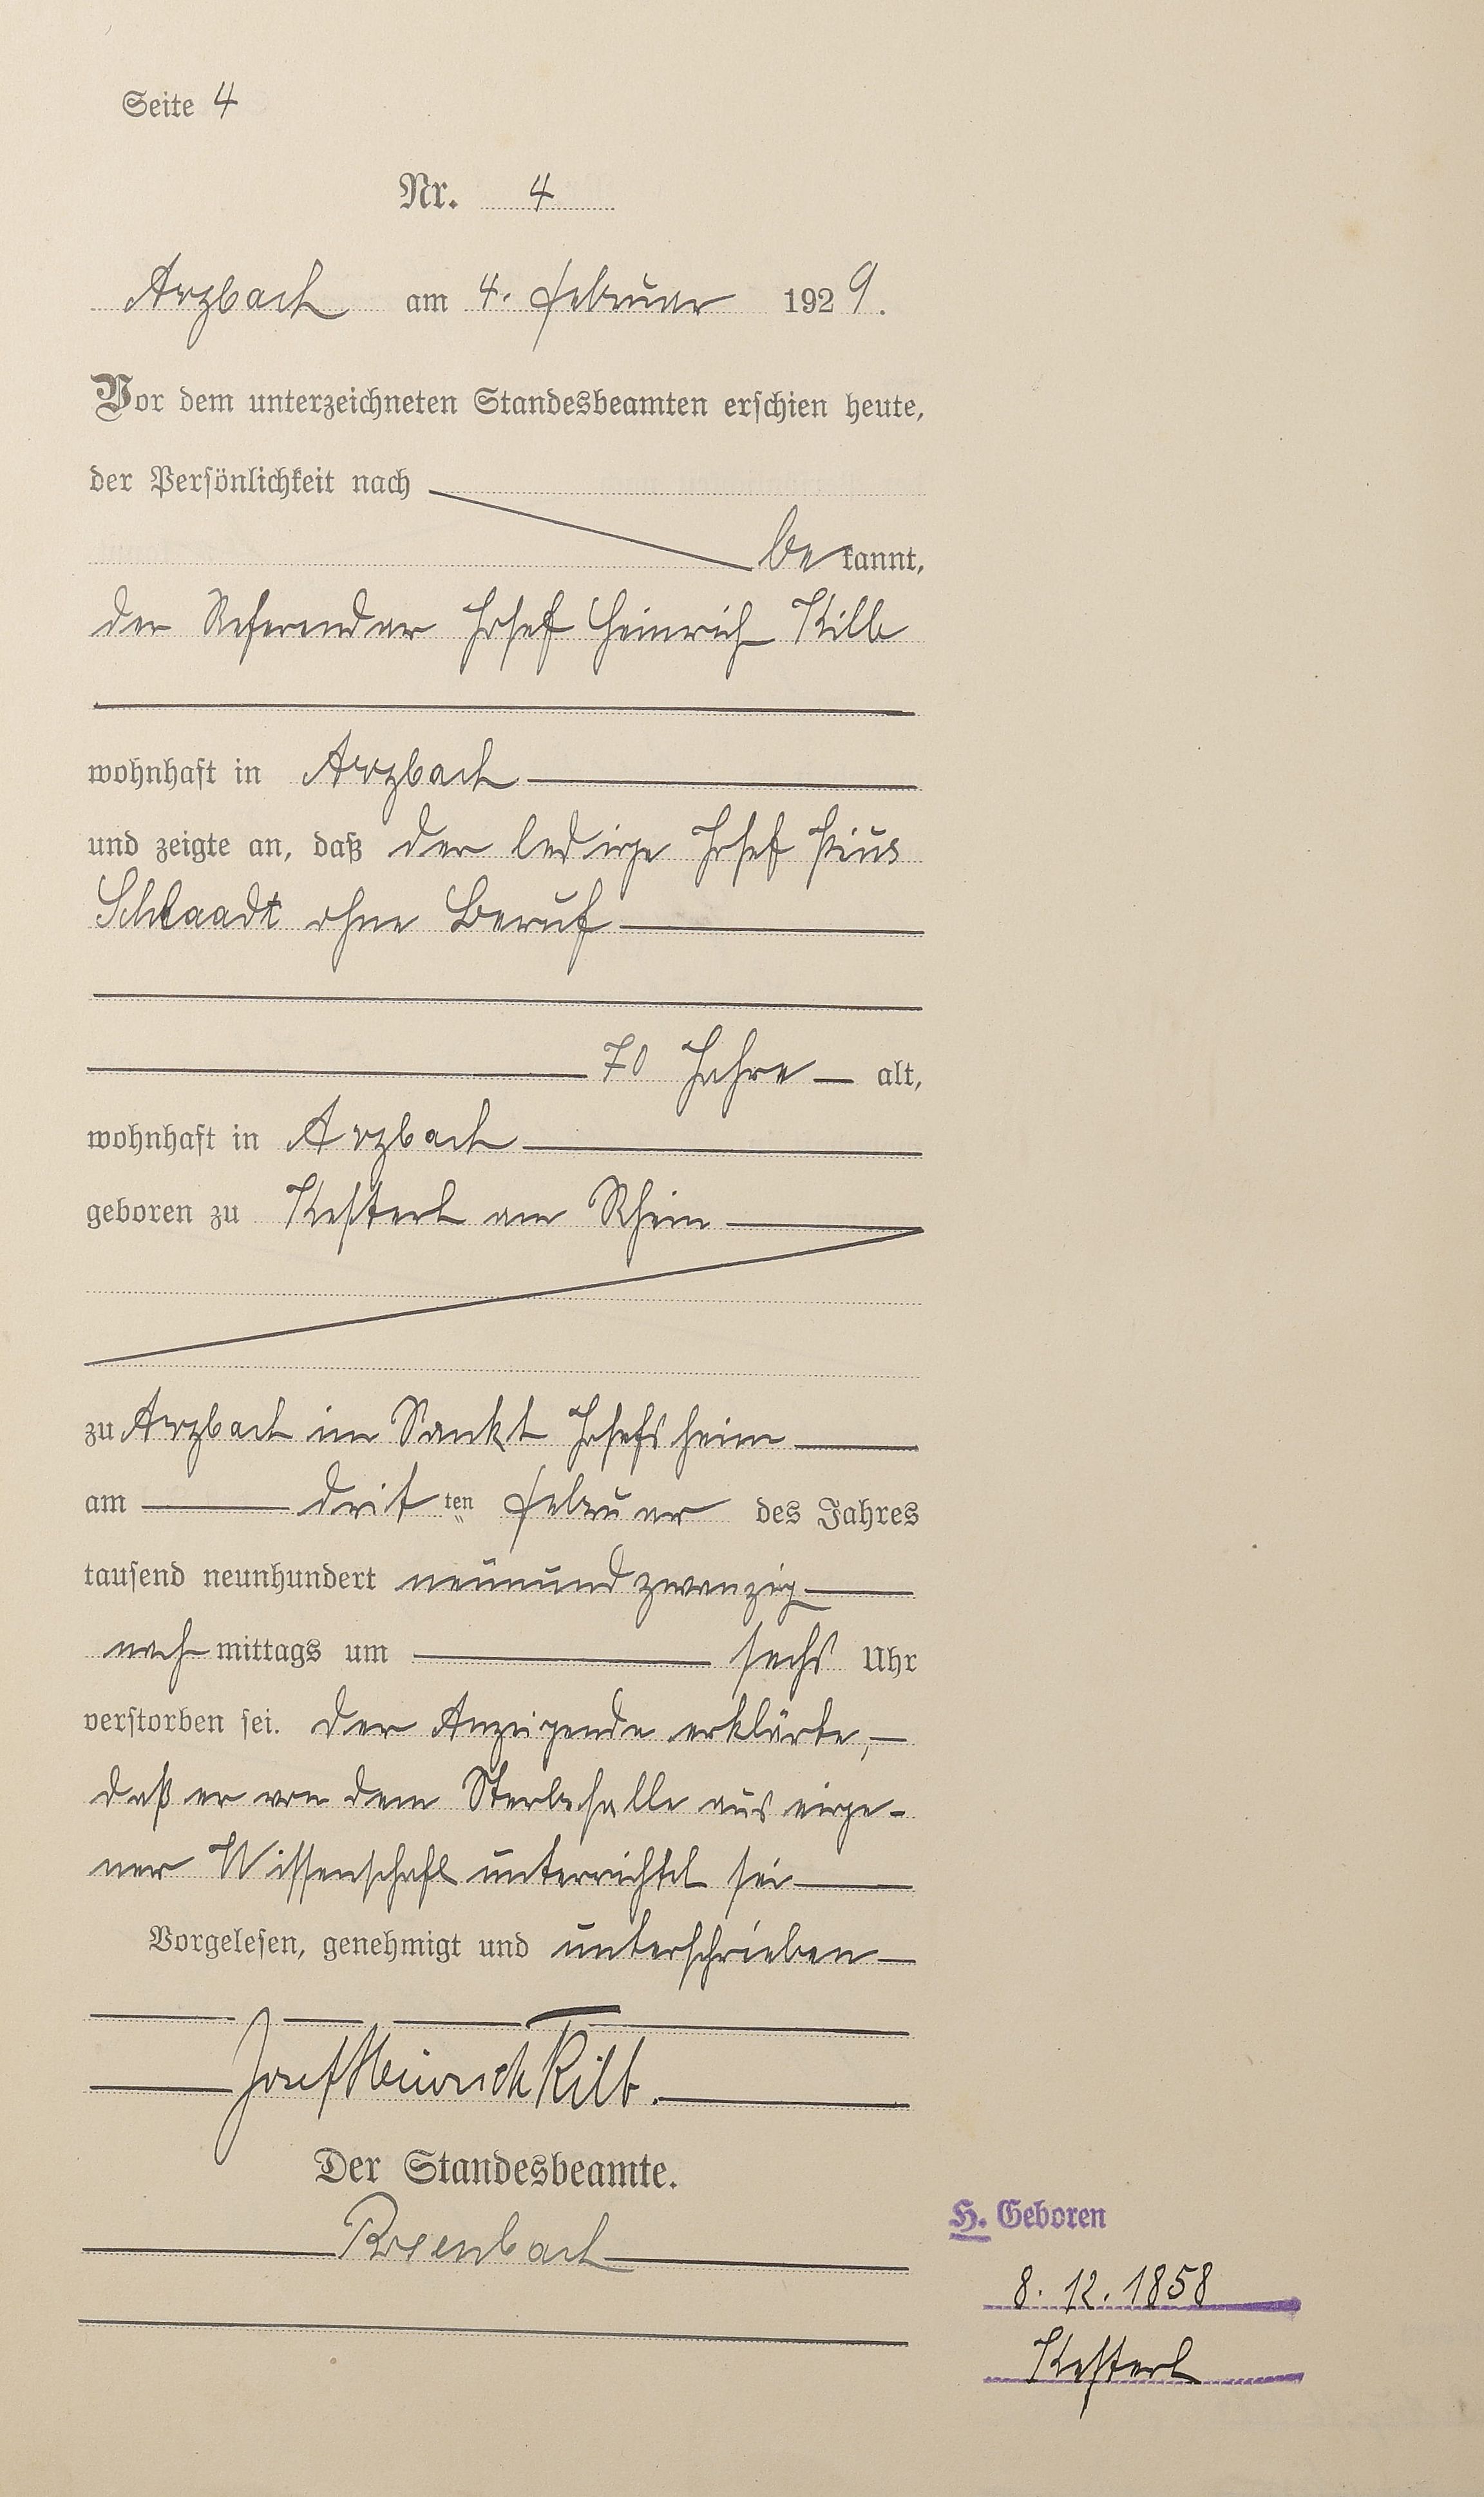 Seite 4
Nr. 4
Arzbach am 4. Februar 1929.
Vor dem unterzeichneten Standesbeamten erschien heute,
der Persönlichkeit nach
bekannt,
der Referendar Josef Heinrich Kilb
wohnhaft in Arzbach
und zeigte an, daß der ledige Josef Pius
Schlaadt ohne Beruf
70 Jahre alt,
wohnhaft in Arzbach
geboren zu Kestert am Rhein
zu Arzbach im Sankt Josefsheim
am dritten Februar des Jahres
tausend neunhundert neunundzwanzig
nachmittags um sechs Uhr
verstorben sei. Der Anzeigende erklärte,
daß er von dem Sterbefalle aus eige-
ner Wissenschaft unterrichtet sei
Vorgelesen, genehmigt und unterschrieben
Josef Heinrich Kilb.
Der Standesbeamte.
H. Geboren
8. 12. 1858
Kestert